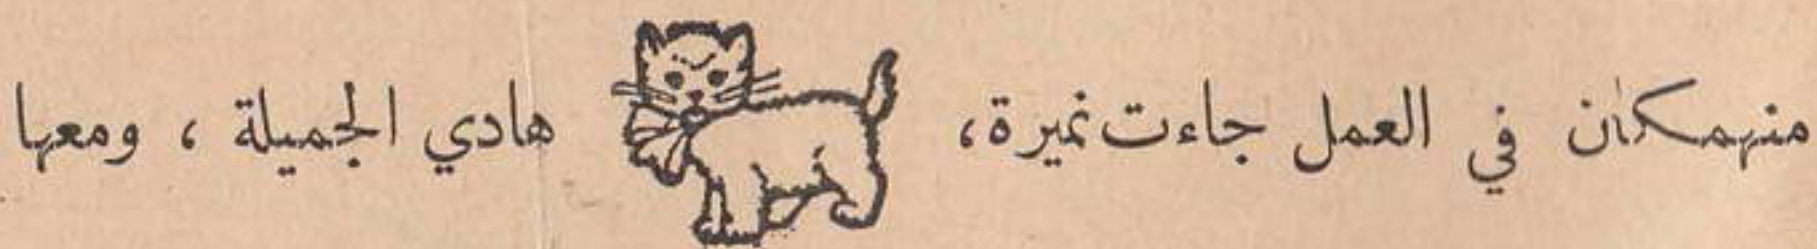 منهمكان في العمل جاءت نميرة، هادي الجميلة ، ومعها